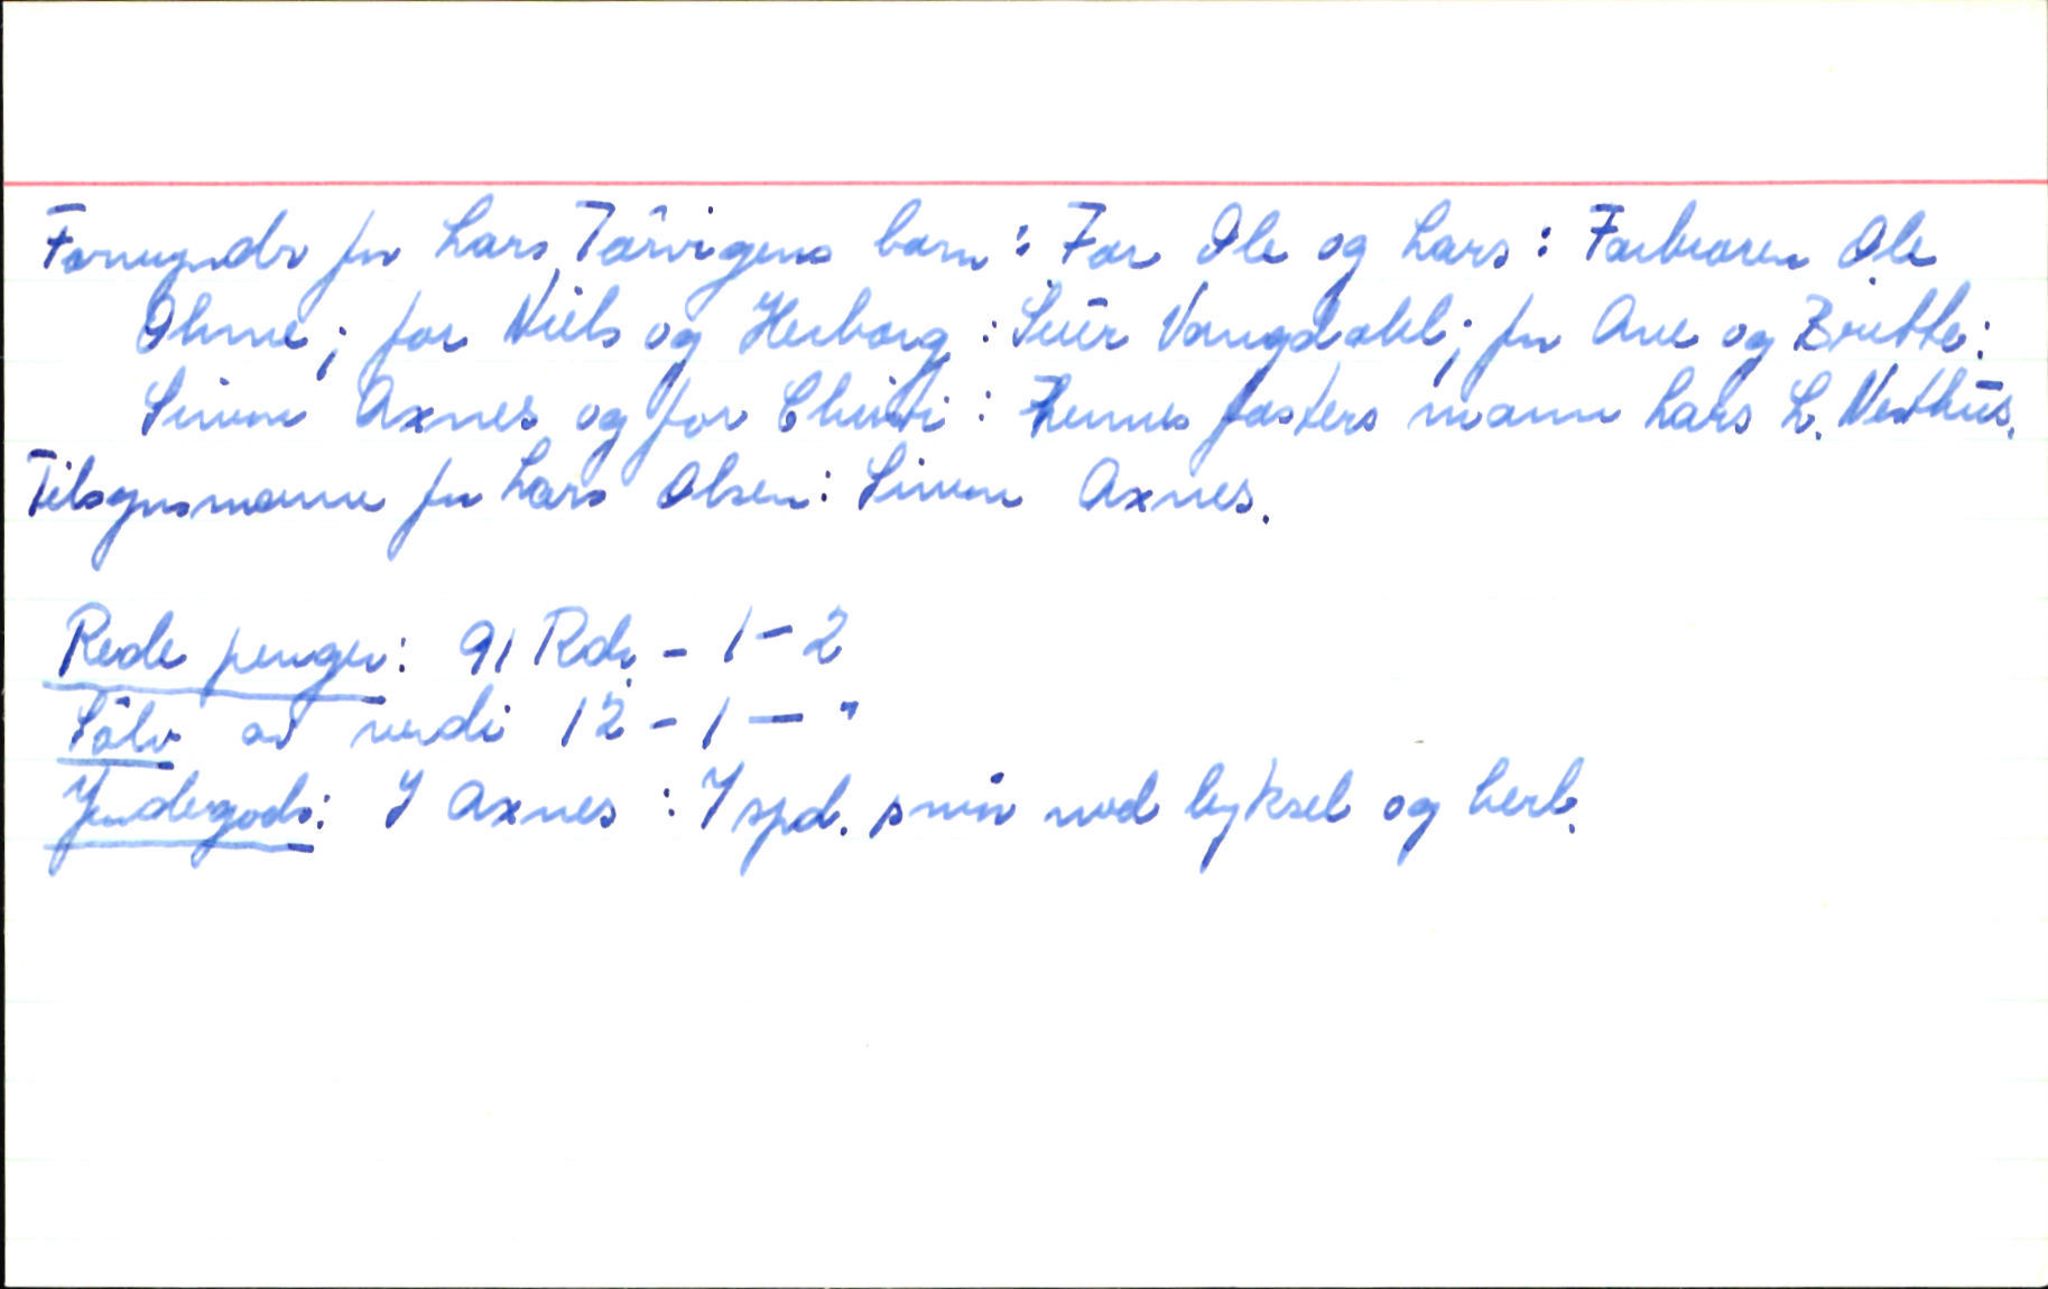 Formyndr for Lars Tørvigens barn: For Ole og Lars: Farbroren Ole
Ohme; for Niels og Herborg: Siūr Vangdahl; for Ane og Britte:
Simon Axnes og for Christi: Hennes fasters mann Lars L. Nesthūs.
Tilsynsmann for Lars Olsen: Simon Axnes.
Rede penger: 91 Rdr. - 1 - 2
Sölv av verdi 12 - 1 - "
Jordegods: I Axnes: 1 spd. smör med byksel og herl.